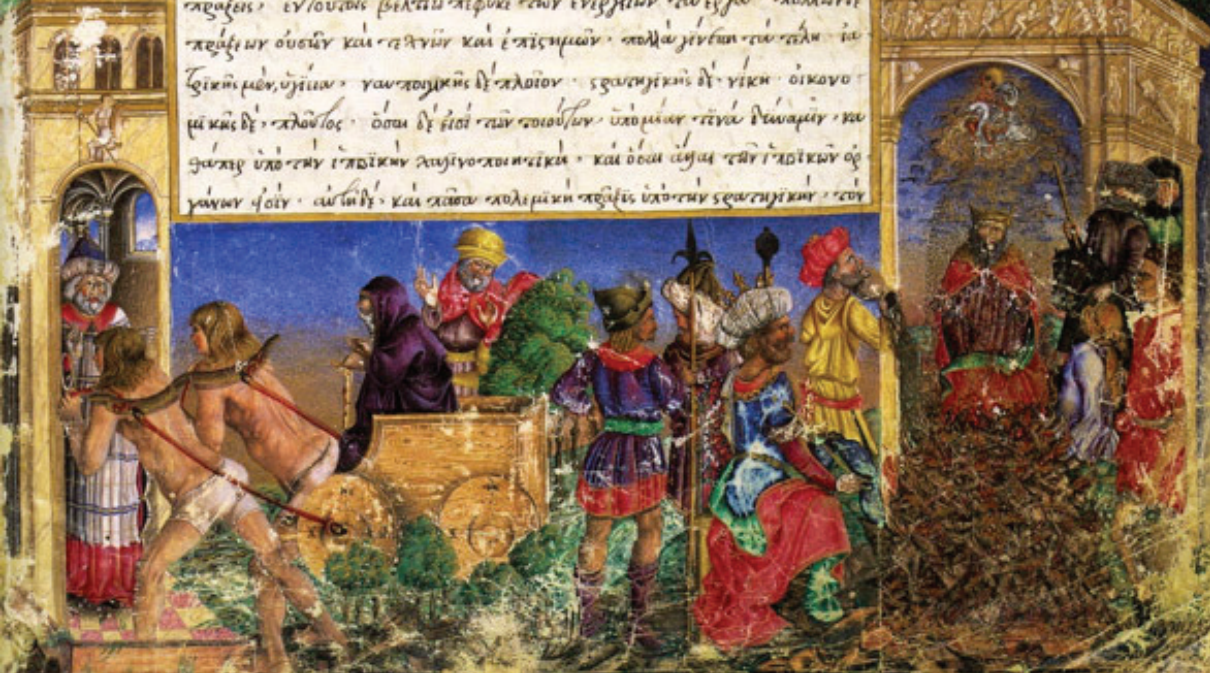 πράξεις· ἐντούτοις βελτίω πέφυκε τῶν ἐνεργειῶν τὰ ἔργα πολλῶν δὲ
πράξεων οὐσῶν καὶ τεχνῶν καὶ ἐπιςημῶν· πολλὰ γίνεται τὰ τέλη· ἰα
τρικῆς μὲν, ὑγίεια· ναυπηγικῆς δὲ πλοῖον· ςρατηγικῆς δὲ· νίκη· οἰκονο
μικῆς δὲ· πλοῦτος· ὅσαι δὲ εἰσὶ τῶν τοιούτων· ὑπὸ μίαν τινὰ δύναμιν· κα
θάπερ ὑπὸ τὴν ἱππικὴν χαλινοποιητικὴ· καὶ ὅσαι ἄλλαι τῶν ἱππικῶν ὀρ
γάνων εἰσίν· αὕτη δὲ· καὶ πᾶσα πολεμικὴ πρᾶξις ὑπὸ τὴν ςρατηγικήν· τὸν